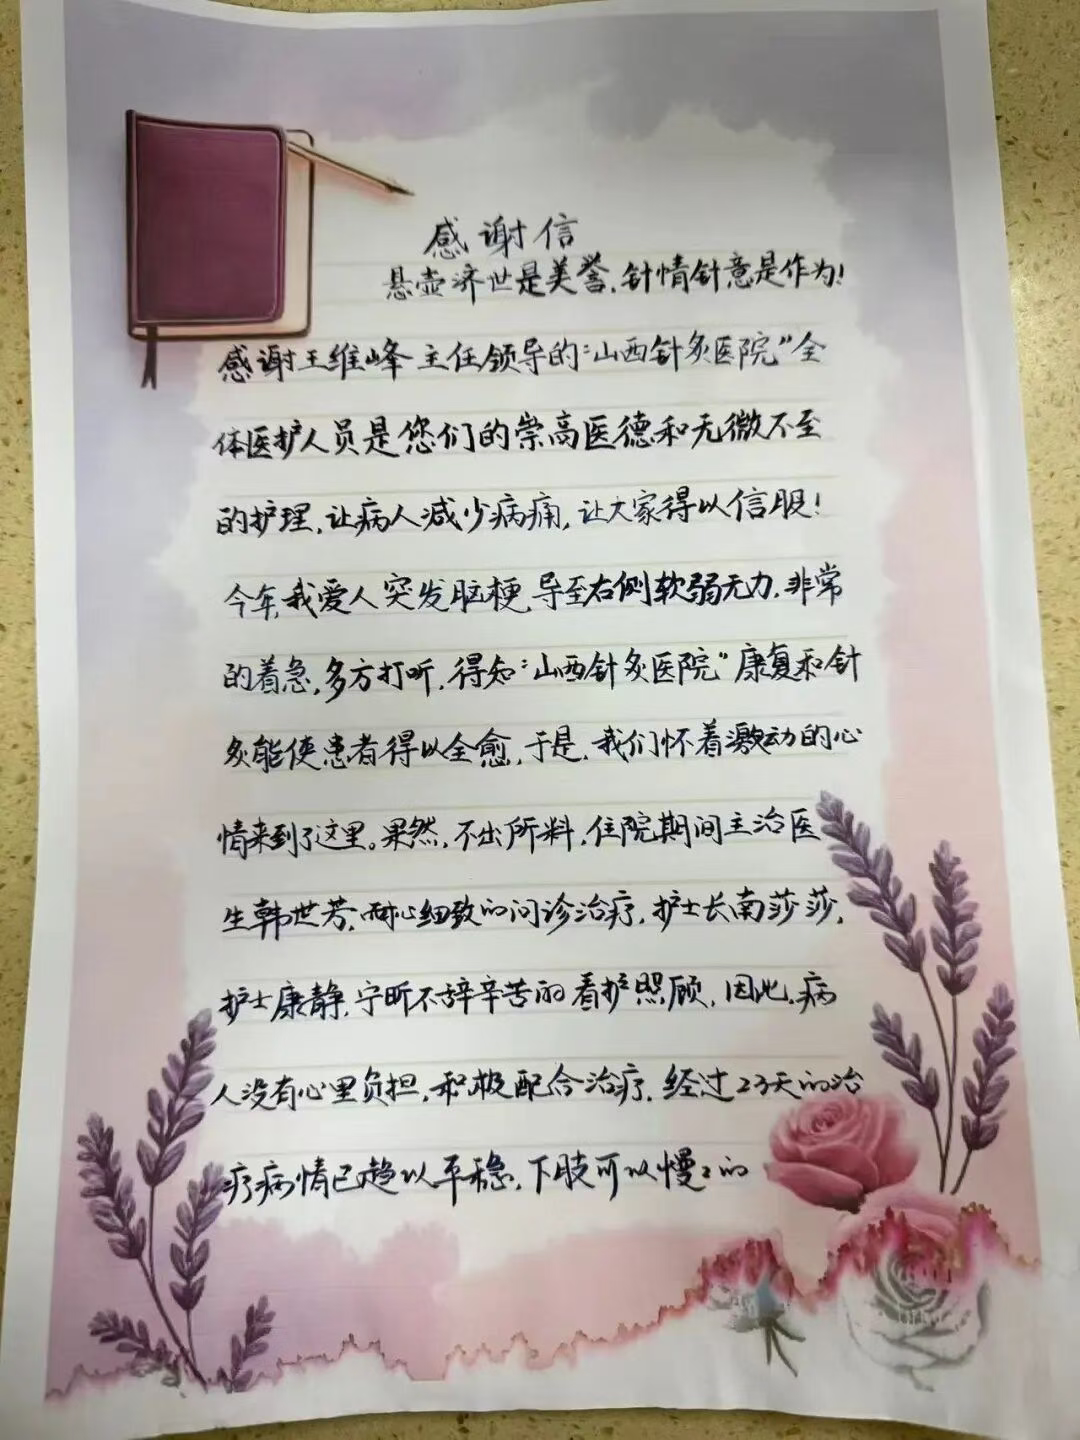 感谢信
悬壶济世是美誉,针情针意是作为!
感谢王维峰主任领导的“山西针灸医院”全
体医护人员是您们的崇高医德和无微不至
的护理,让病人减少病痛,让大家得以信服!
今年,我爱人突发脑梗,导至右侧软弱无力,非常
的着急,多方打听,得知“山西针灸医院”康复和针
灸能使患者得以全愈,于是,我们怀着激动的心
情来到了这里。果然,不出所料,住院期间主治医
生韩世芳,耐心细致的问诊治疗,护士长南莎莎,
护士康静,宁昕不辞辛苦的看护照顾,因此,病
人没有心里负担,积极配合治疗,经过23天的治
疗病情已趋以平稳,下肢可以慢々的